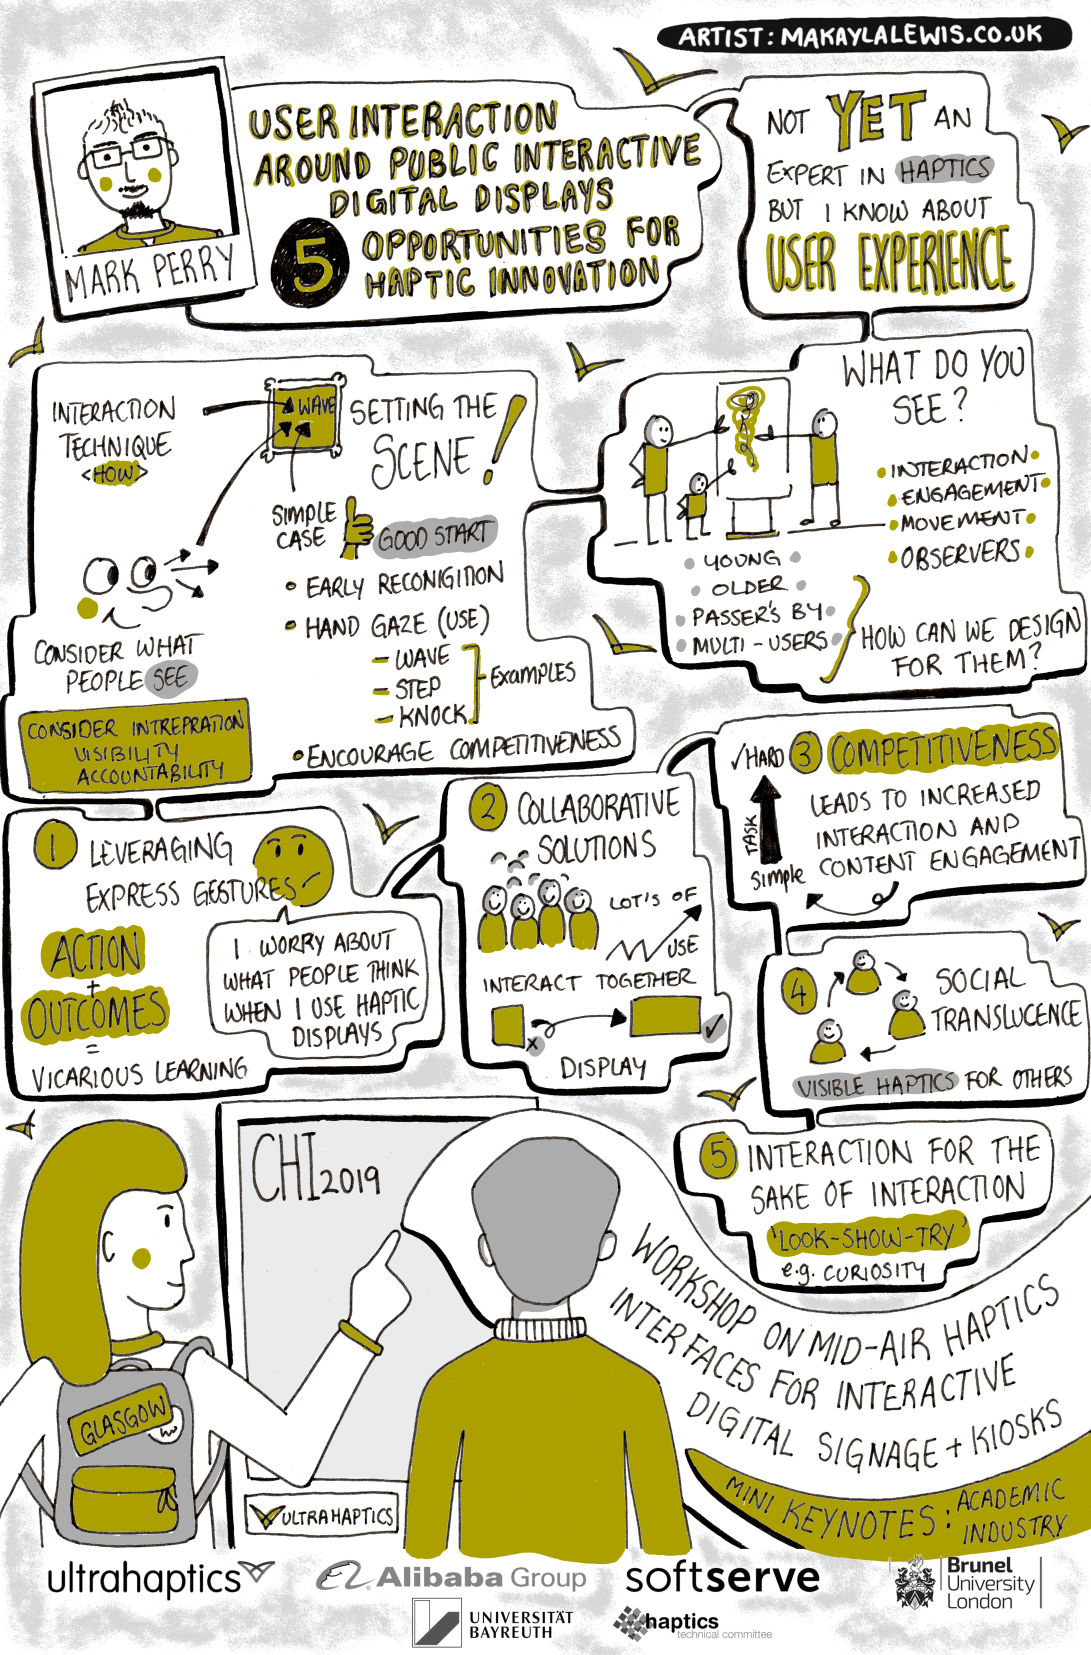 ARTIST: MAKAYLALEWIS.CO.UK
MARK PERRY
USER INTERACTION
AROUND PUBLIC INTERACTIVE
DIGITAL DISPLAYS
5 OPPORTUNITIES FOR
HAPTIC INNOVATION
NOT YET AN
EXPERT IN HAPTICS
BUT I KNOW ABOUT
USER EXPERIENCE
WHAT DO YOU
SEE?
• INTERACTION •
• ENGAGEMENT •
• MOVEMENT •
• OBSERVERS •
• YOUNG •
• OLDER •
• PASSER'S BY •
• MULTI-USERS •
HOW CAN WE DESIGN
FOR THEM?
SETTING THE
SCENE!
INTERACTION
TECHNIQUE
<HOW>
WAVE
SIMPLE
CASE
GOOD START
• EARLY RECONIGITION
• HAND GAZE (USE)
– WAVE
– STEP
– KNOCK
Examples
• ENCOURAGE COMPETITIVENESS
CONSIDER WHAT
PEOPLE SEE
CONSIDER INTREPRATION
VISIBILITY
ACCOUNTABILITY
1 LEVERAGING
EXPRESS GESTURES
ACTION
+
OUTCOMES
=
VICARIOUS LEARNING
I WORRY ABOUT
WHAT PEOPLE THINK
WHEN I USE HAPTIC
DISPLAYS
2 COLLABORATIVE
SOLUTIONS
LOT'S OF
USE
INTERACT TOGETHER
x ✓
DISPLAY
✓HARD
TASK
Simple
3 COMPETITIVENESS
LEADS TO INCREASED
INTERACTION AND
CONTENT ENGAGEMENT
4 SOCIAL
TRANSLUCENCE
VISIBLE HAPTICS FOR OTHERS
5 INTERACTION FOR THE
SAKE OF INTERACTION
'LOOK-SHOW-TRY'
e.g. CURIOSITY
CHI 2019
GLASGOW
ULTRAHAPTICS
WORKSHOP ON MID-AIR HAPTICS
INTERFACES FOR INTERACTIVE
DIGITAL SIGNAGE + KIOSKS
MINI KEYNOTES: ACADEMIC
INDUSTRY
ultrahaptics
Alibaba Group
softserve
Brunel
University
London
UNIVERSITÄT
BAYREUTH
haptics
technical committee